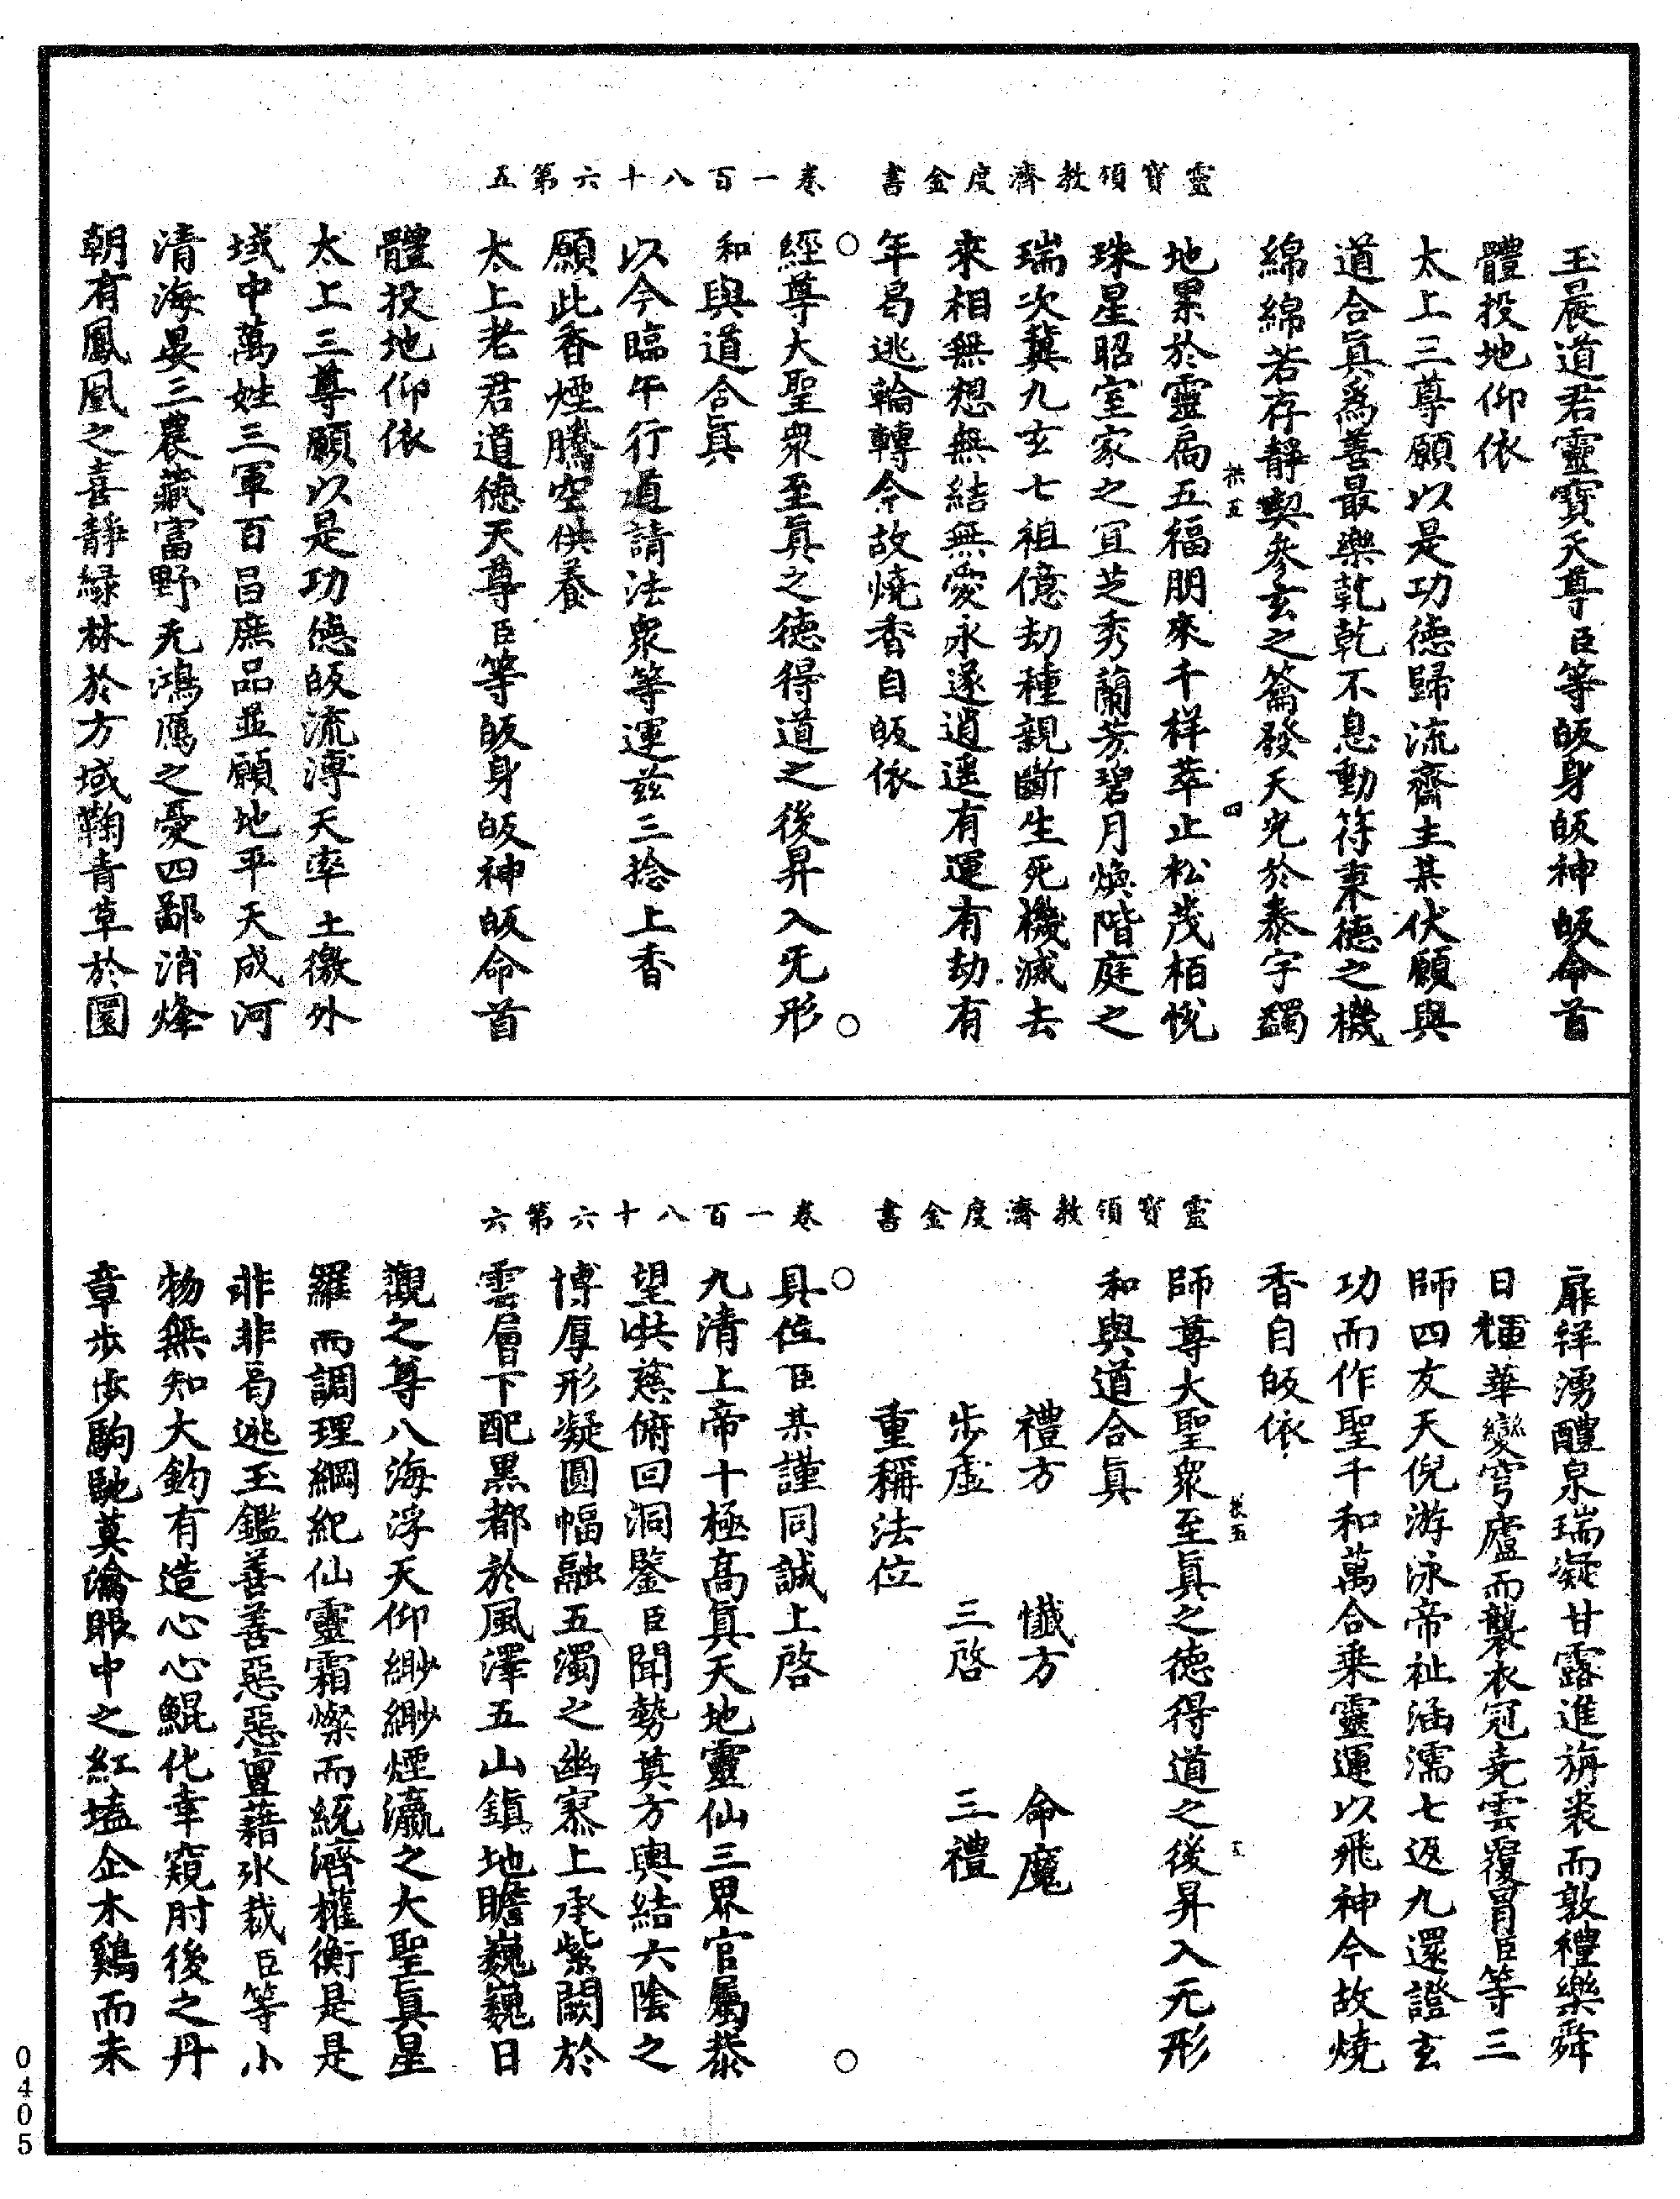 靈寶領教濟度金書　卷一百八十六第五
玉晨道君靈寶天尊臣等皈身皈神皈命首
體投地仰依
太上三尊願以是功德歸流齋主某伏願與
道合眞爲善最樂乾乾不息動符秉德之機
綿綿若存靜契參玄之籥發天光於泰宇蠲
地累於靈扃五福朋來千祥萃止松茂柏悅
珠星昭室家之宜芝秀蘭芳碧月煥階庭之
瑞次冀九玄七祖億劫種親斷生死機滅去
來相無想無結無愛永遂逍遥有運有劫有
年曷逃輪轉今故燒香自皈依
經尊大聖衆至眞之德得道之後昇入无形
和與道合眞
以今臨午行道請法衆等運兹三捻上香
願此香煙騰空供養
太上老君道德天尊臣等皈身皈神皈命首
體投地仰依
太上三尊願以是功德皈流溥天率土徼外
域中萬姓三軍百昌庶品並願地平天成河
清海晏三農藏富野无鴻鴈之憂四鄙消烽
朝有鳳凰之喜靜緑林於方域鞠青草於圜
靈寶領教濟度金書　卷一百八十六第六
扉祥湧醴泉瑞凝甘露進旃裘而敦禮樂舜
日輝華變穹廬而襲衣冠堯雲覆冒臣等三
師四友天倪游泳帝祉涵濡七返九還證玄
功而作聖千和萬合乗靈運以飛神今故燒
香自皈依
師尊大聖衆至眞之德得道之後昇入无形
和與道合眞
禮方　懺方　命魔
步虛　三啓　三禮
重稱法位
具位臣某謹同誠上啓
九清上帝十極高眞天地靈仙三界官屬恭
望洪慈俯回洞鑒臣聞勢奠方輿結六陰之
博厚形凝圓幅融五濁之幽寥上承紫闕於
雲層下配黑都於風澤五山鎮地瞻巍巍日
觀之尊八海浮天仰緲緲煙瀛之大聖眞星
羅而調理綱紀仙靈霜燦而統濟權衡是是
非非曷逃玉鑑善善惡惡亶藉氷裁臣等小
物無知大鈞有造心心鯤化幸窺肘後之丹
章步步駒馳莫瀹眼中之紅𡏖企木鷄而未
0405